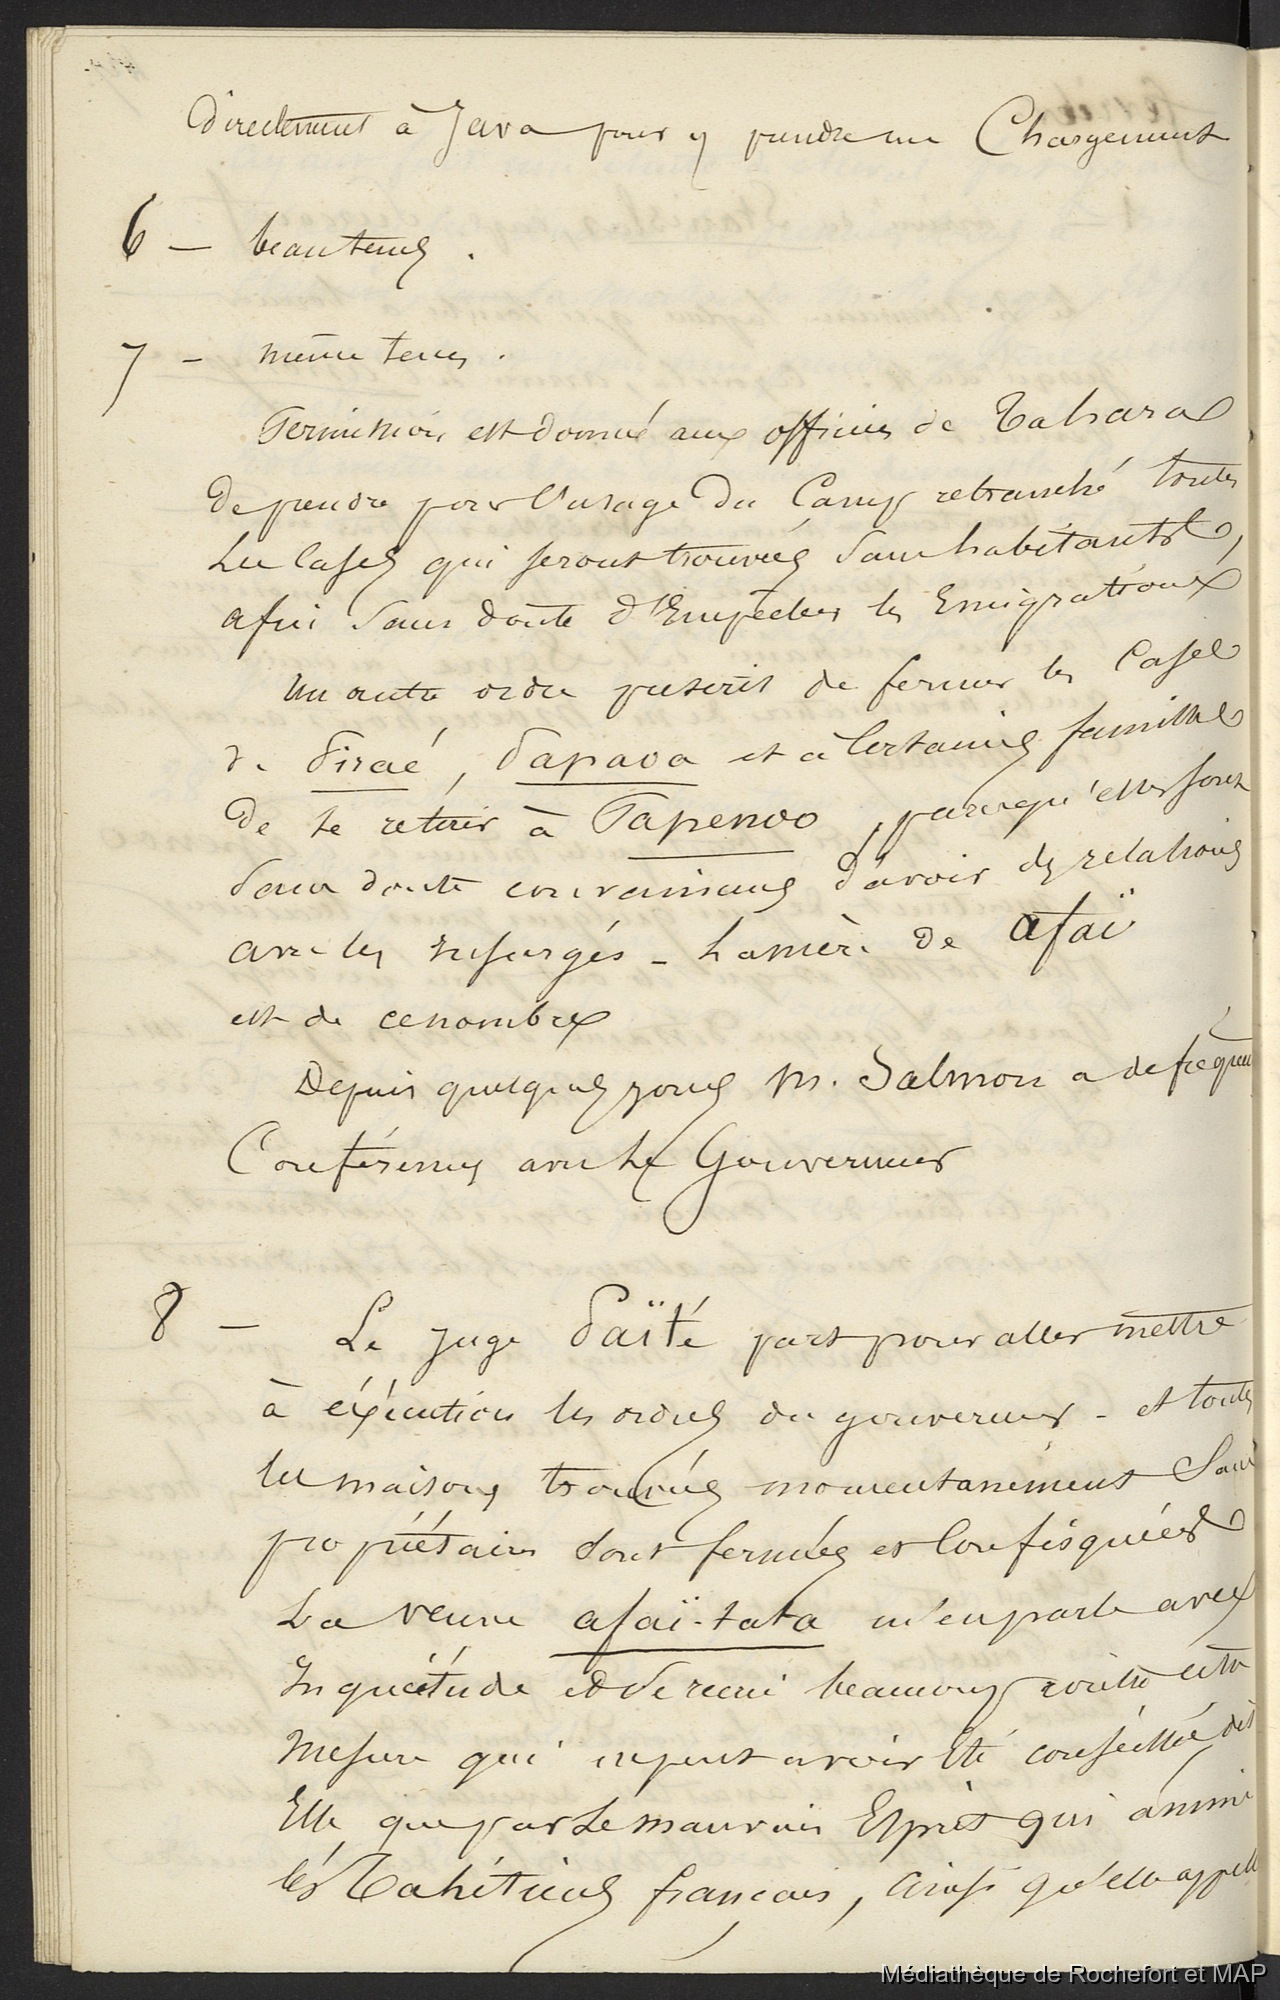 Directement à Java pour y prendre un Chargement
6 – beau tems .
7 – même tems .
Permission est donné aux officiers de Taharaa
de prendre pour l'usage du Camp retranché toutes
les Cases qui seront trouvées sans habitants,
afin sans doute d'Empecher les Emigrations
Un autre ordre prescrit de fermer les Cases
de Piraé, Papaoa et à Certaines familles
de se retirer à Papenoo, parcequ'elles sont
sans doute convaincues d'avoir des relations
avec les insurgés – la mère de afaï
est de ce nombre
Depuis quelques jours M. Salmon a de fréquen
Conférences avec le Gouverneur
8 – Le juge Païté part pour aller mettre
à éxécution les ordres du gouverneur – et toutes
les maisons trouvées momentanément Sans
propriétaires sont fermées et Confisquées
La veuve afaï-tata m'en parle avec
Inquiétude et se récrie beaucoup contre cette
mesure qui ne peut avoir été conseillée dit
Elle que par le mauvais Esprit qui anime
les Tahitiens français, ainsi qu'elle appelle
Médiathèque de Rochefort et MAP